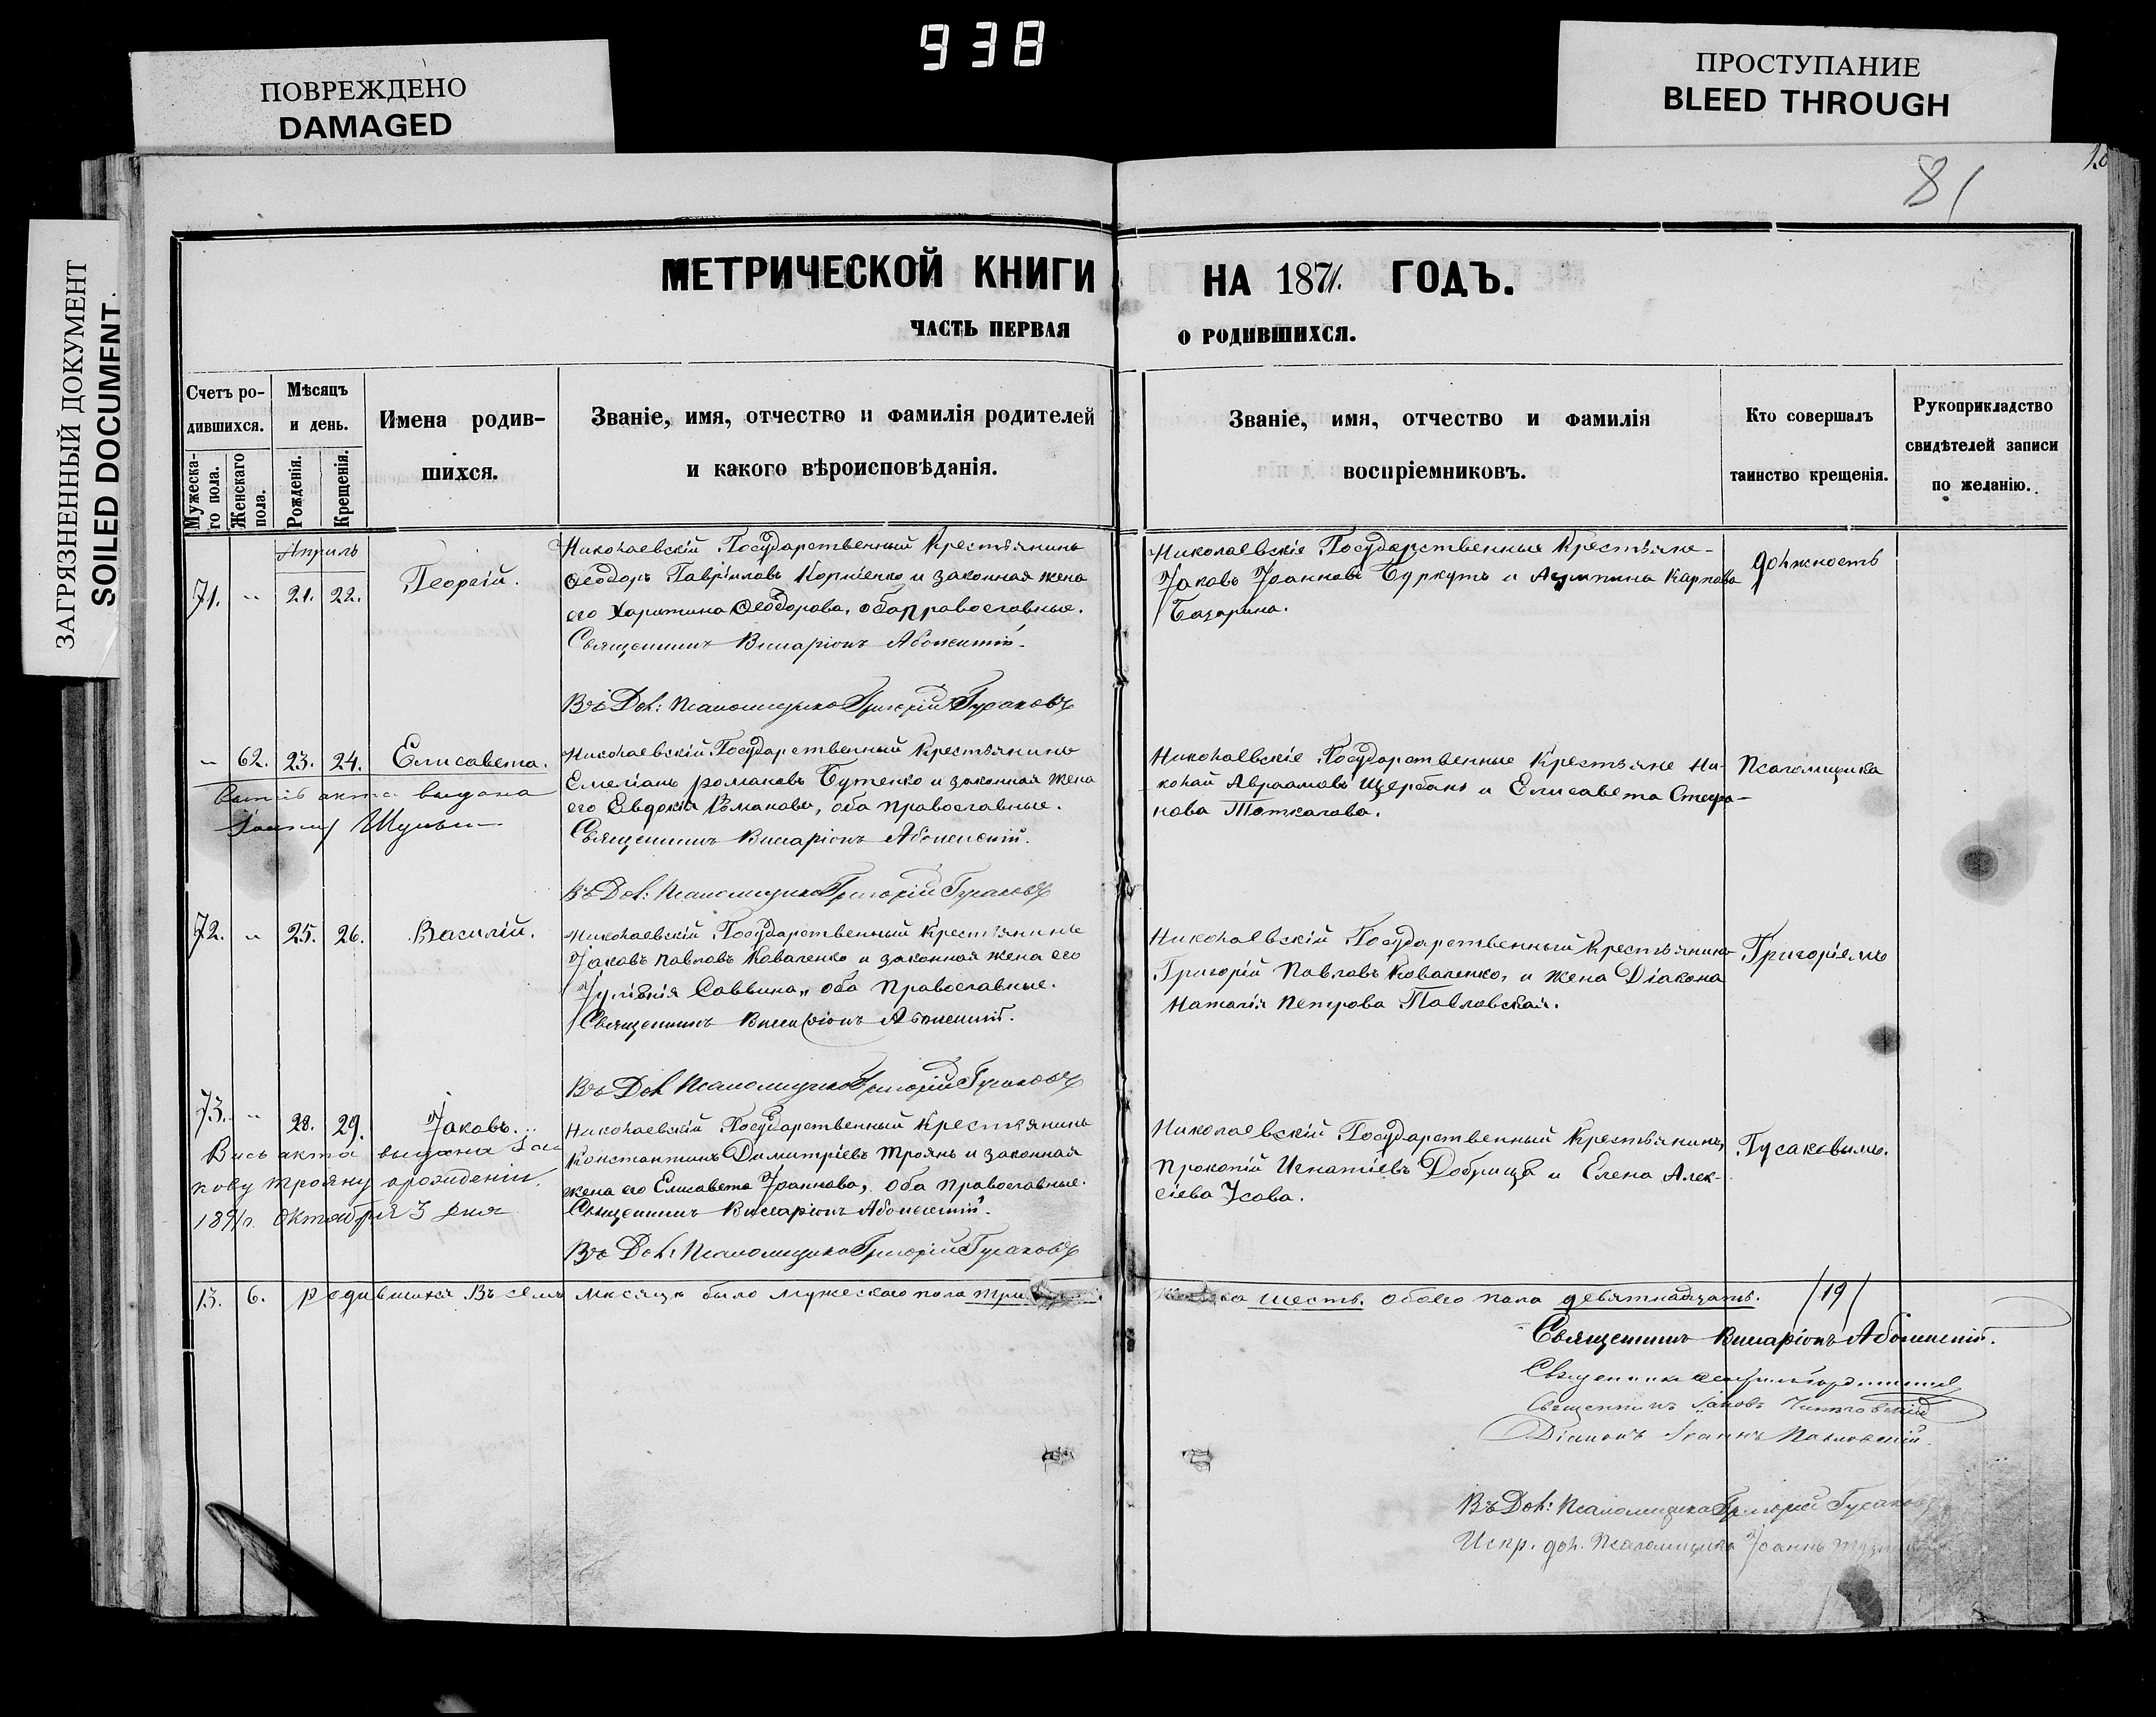 938
ПОВРЕЖДЕНО
DAMAGED
ПРОСТУПАНИЕ
BLEED THROUGH
ЗАГРЯЗНЕННЫЙ ДОКУМЕНТ
SOILED DOCUMENT
81
МЕТРИЧЕСКОЙ КНИГИ НА 1871. ГОДЪ.
ЧАСТЬ ПЕРВАЯ О РОДИВШИХСЯ.
Счетъ ро-
дившихся.
Мужеска-
го пола.
Женскаго
пола.
Мѣсяцъ
и день.
Рожденія.
Крещенія.
Имена родив-
шихся.
Званіе, имя, отчество и фамилія родителей
и какого вѣроисповѣданія.
Званіе, имя, отчество и фамилія
воспріемниковъ.
Кто совершалъ
таинство крещенія.
Рукоприкладство
свидѣтелей записи
по желанію.
Апрѣль
71. „ 21. 22. Георгій.
Николаевскій Государственный Крестьянинъ
Ѳеодоръ Гавріиловъ Корніенко и законная жена
его Харитина Ѳеодорова, оба православные.
Священникъ Виссаріонъ
Въ Дол: Псаломщика Григорій Гусаковъ
Николаевскіе Государственные Крестьяне
Іаковъ Іоанновъ Буркутъ и Карпова
Базарина.
должность
„ 62. 23. 24. Елисавета.
выдана
Николаевскій Государственный Крестьянинъ
Емеліанъ Романовъ Бутенко и законная жена
его Евдокія Романова, оба православные.
Священникъ Виссаріонъ
Въ Дол: Псаломщика Григорій Гусаковъ
Николаевскіе Государственные Крестьяне Ни-
колай Авраамовъ Щербань и Елисавета Стефа-
нова Толкачова.
Псаломщика
72. „ 25. 26. Василій.
Николаевскій Государственный Крестьянинъ
Іаковъ Павловъ Коваленко и законная жена его
Іуліанія Саввина, оба Православные.
Священникъ Виссаріонъ
Въ Дол Псаломщика Григорій Гусаковъ
Николаевскій Государственный Крестьянинъ
Григорій Павловъ Коваленко, и жена Діакона
Наталія Петрова Павловская.
Григоріемъ
73. „ 28. 29. Іаковъ.
акта выдана Іа-
кову Трояну о рожденіи
октября 3 дня
Николаевскій Государственный Крестьянинъ
Константинъ Димитріевъ Троянъ и законная
жена его Елисавета Іоаннова, оба православные.
Священникъ Виссаріонъ
Въ Дол: Псаломщика Григорій Гусаковъ
Николаевскій Государственный Крестьянинъ
Прокопій Игнатіевъ Добрица и Елена Алек-
сіева Усова.
Гусаковымъ.
13. 6. Родившихся въ семъ мѣсяцѣ было мужескаго пола шесть. обоего пола девятнадцать. /19/
Священникъ Виссаріонъ
Священникъ
Священникъ Іаковъ
Діаконъ Іоаннъ Павловскій
Въ Дол: Псаломщика Григорій Гусаковъ
Испр. дол. Псаломщика Іоаннъ